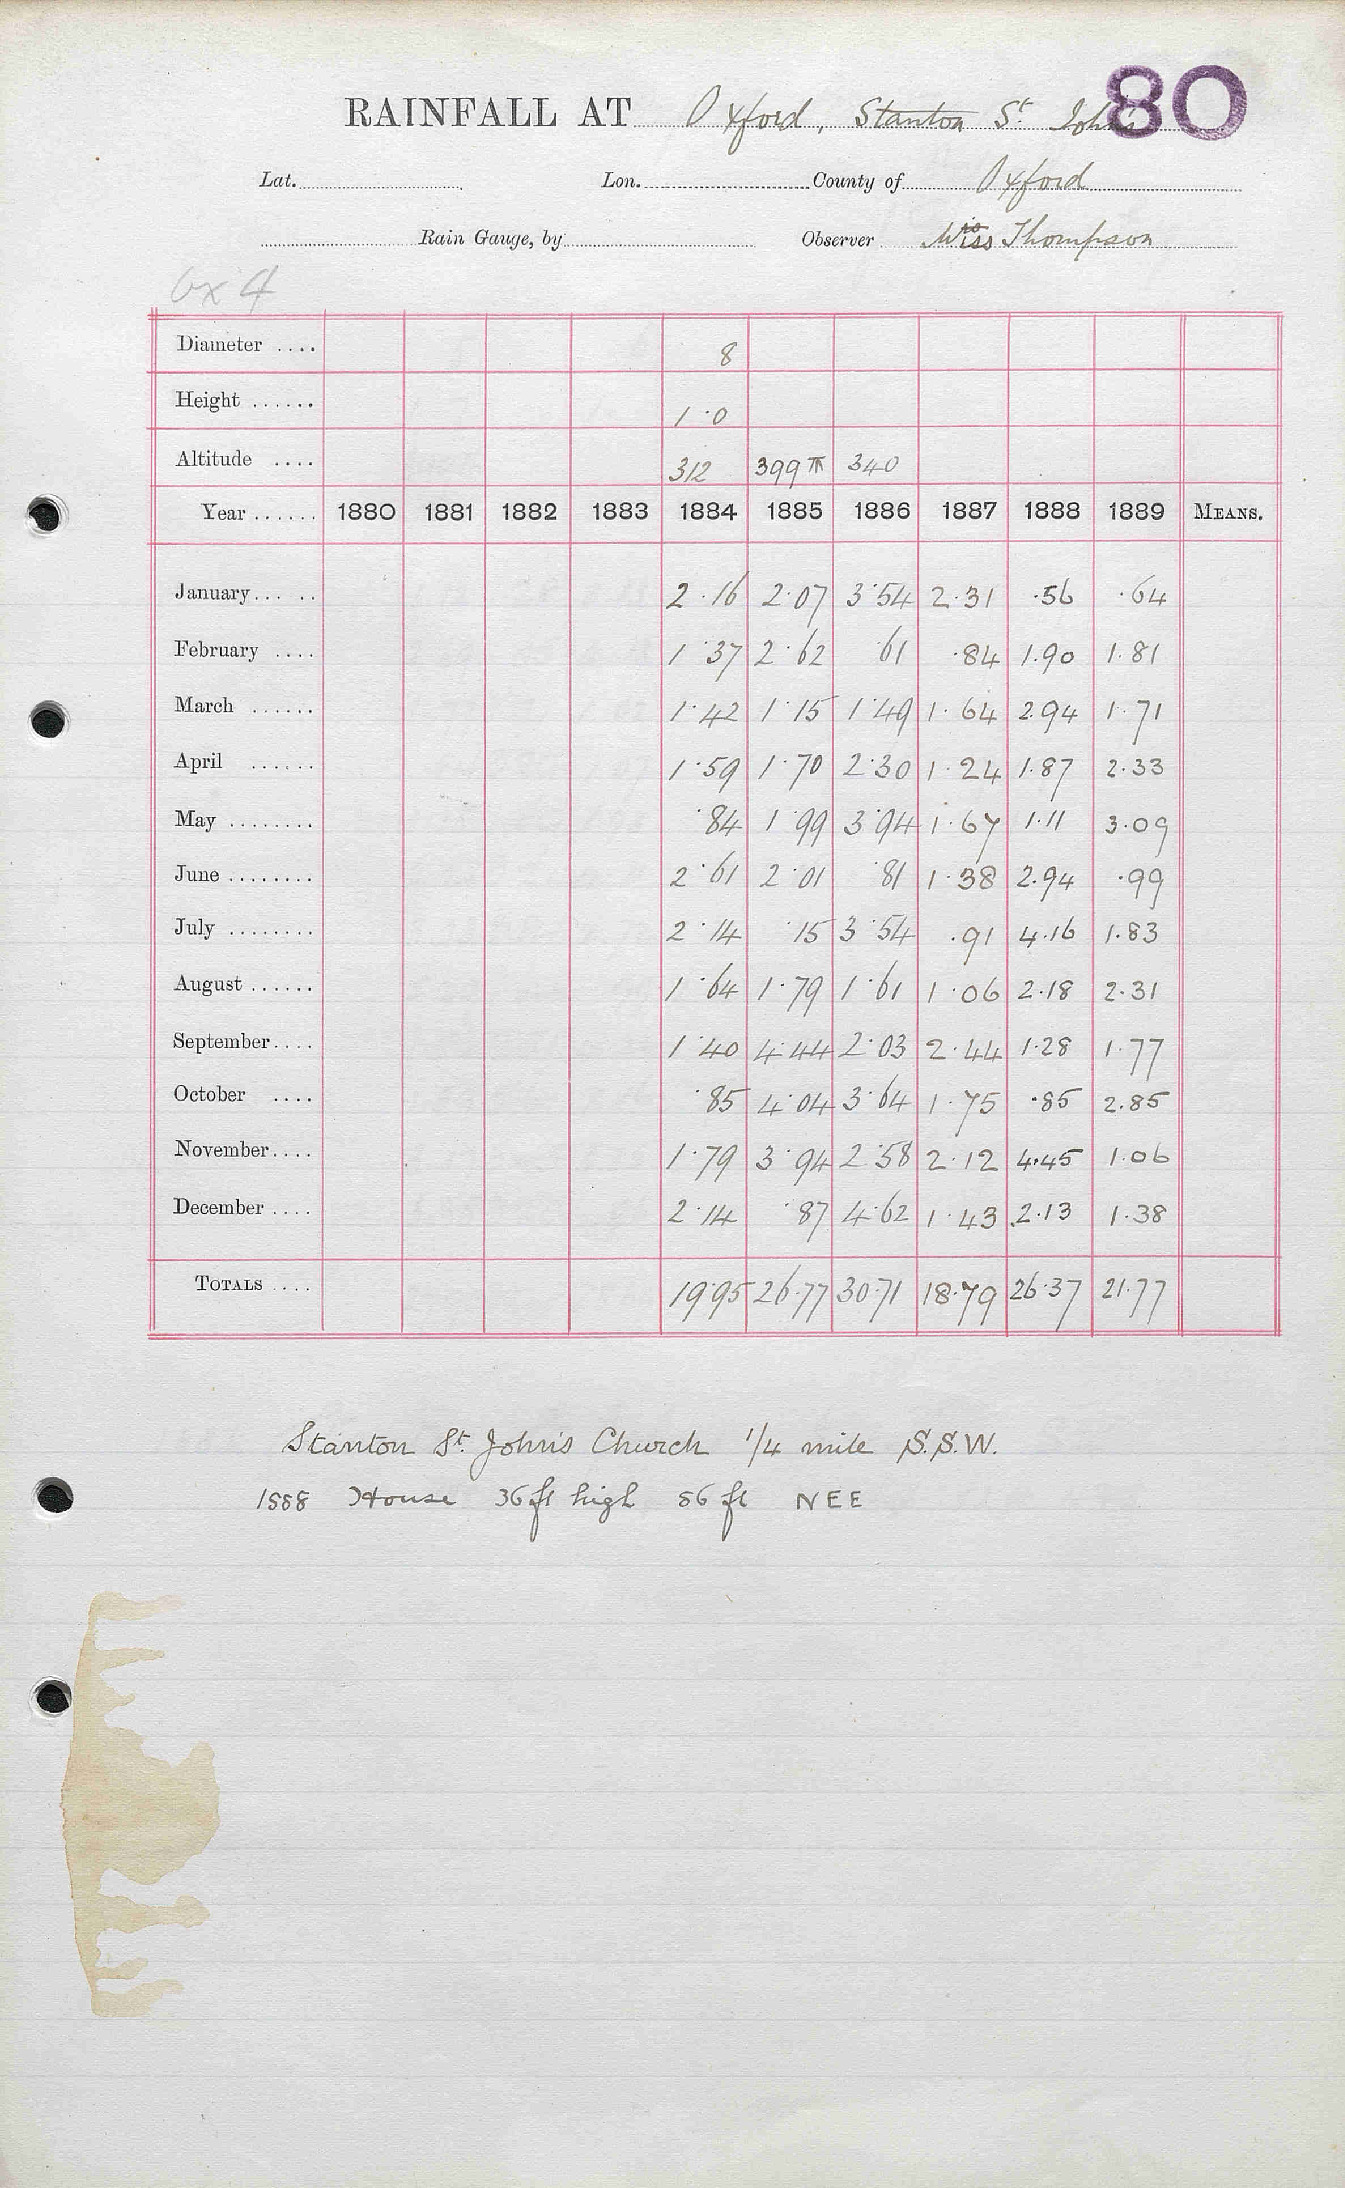 80
RAINFALL AT Oxford, Stanton St. John's
Lat. Lon. County of Oxford
Rain Gauge, by Observer Miss Thompson
Ox 4
Diameter .... 8
Height ...... 1·0
Altitude .... 312 399 π 340
Year ...... 1880 1881 1882 1883 1884 1885 1886 1887 1888 1889 MEANS.
January... .. 2·16 2·07 3·54 2·31 ·56 ·64
February .... 1·37 2·62 ·61 ·84 1·90 1·81
March ...... 1·42 1·15 1·49 1·64 2·94 1·71
April ...... 1·59 1·70 2·30 1·24 1·87 2·33
May ........ ·84 1·99 3·94 1·67 1·11 3·09
June ........ 2·61 2·01 ·81 1·38 2·94 ·99
July ........ 2·14 ·15 3·54 ·91 4·16 1·83
August ...... 1·64 1·79 1·61 1·06 2·18 2·31
September.... 1·40 4·44 2·03 2·44 1·28 1·77
October .... ·85 4·04 3·64 1·75 ·85 2·85
November.... 1·79 3·94 2·58 2·12 4·45 1·06
December .... 2·14 ·87 4·62 1·43 2·13 1·38
TOTALS .... 19·95 26·77 30·71 18·79 26·37 21·77
Stanton St. John's Church 1/4 mile S.S.W.
1888 House 36 ft high 56 ft NEE